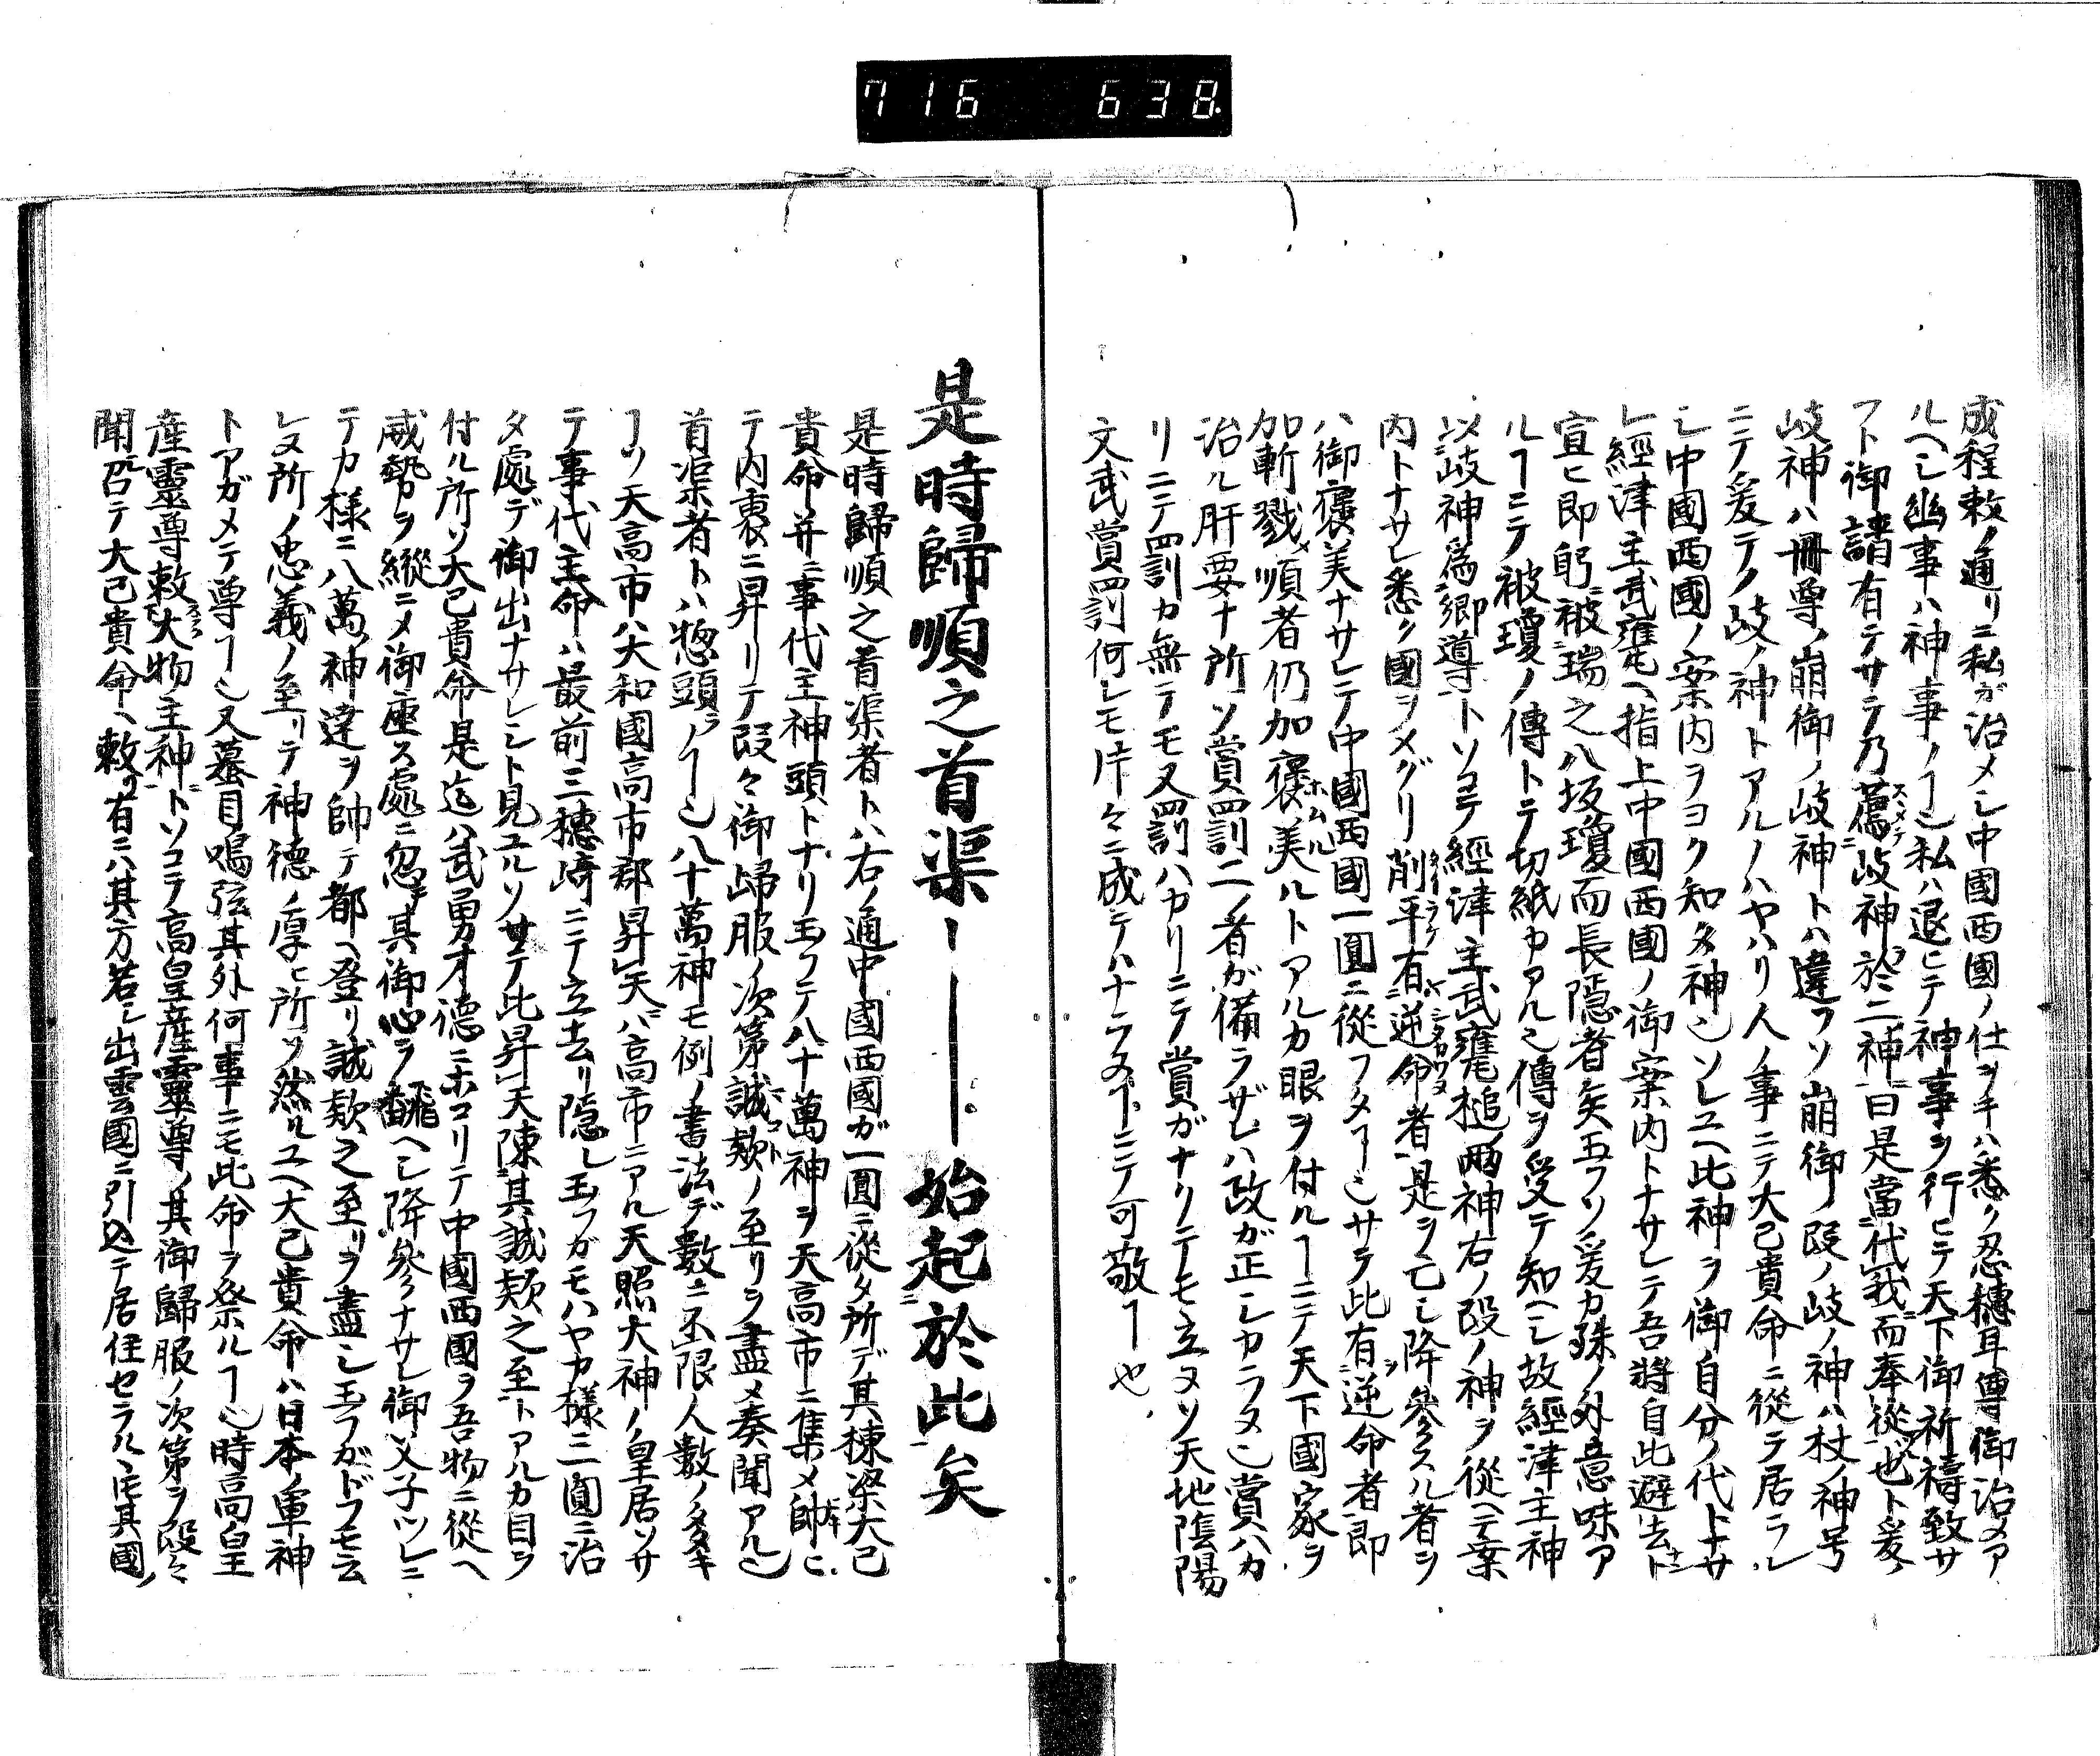 716 638
成程敕ノ通リニ私ガ治メシ中國西國ノ仕ヲキハ悉ク忍穗耳尊御治メア
ルヘシ幽事ハ神事ノヿ也私ハ退ヒテ神事ヲ行ヒテ天下御祈禱致サ
フト御請有テサテ乃薦岐神於二神曰是當代我而奉從也ト爰ノ
岐神ハ冊尊ノ崩御ノ岐神トハ違フソ崩御ノ段ノ岐ノ神ハ杖ノ神号
ニテ爰テノ岐ノ神トアルノハヤハリ人ノ事ニテ大己貴命ニ從テ居ラレ
シ中國西國ノ案内ヲヨク知タ神也ソレユヘ此神ヲ御自分ノ代トナサ
レ經津主武甕尾ヘ指上中國西國ノ御案内トナサレテ吾將自此避去ト
宣ヒ即躬被瑞之八坂瓊而長隱者矣玉フソ爰カ殊ノ外意味ア
ルヿニテ被瓊ノ傳トテ切紙カアル也傳ヲ受テ知ヘシ故經津主神
以岐神爲鄉導トソコテ經津主武甕尾槌兩神右ノ段ノ神ヲ從ヘテ案
内トナサレ悉ク國ヲメグリ削平有逆命者是ヲ亡シ降參スル者ヲ
ハ御褒美ナサレテ中國西國一圓ニ從フタヿ也サテ此有逆命者即
加斬戮順者仍加褒美ルトアルカ眼ヲ付ルヿニテ天下國家ヲ
治ル肝要ナ所ソ賞罰二者ガ備ラザレハ政ガ正シカラヌ也賞ハカ
リニテ罰カ無テモ又罰ハカリニテ賞ガナクテモ立ヌソ天地陰陽
文武賞罰何レモ片々ニ成テハナラヌヿニテ可敬ヿ也
是時歸順之首渠ー——始起於此矣
是時歸順之首渠者トハ右ノ通中國西國ガ一圓ニ從タ所デ其棟梁大己
貴命并ニ事代主神頭トナリ玉フテ八十萬神ヲ天高市ニ集メ帥ヒ
テ内裏ニ昇リテ段々御歸服ノ次第誠款ノ至リヲ盡メ奏聞アル也
首渠者トハ惣頭ラノヿ也八十萬神モ例ノ書法デ數ニ不限人數ノ多キ
ヿソ天高市ハ大和國高市郡昇天ハ高市ニアル天照大神ノ皇居ソサ
テ事代主命ハ最前三穗崎ニテ立去リ隱レ玉フガモハヤカ樣ニ一圓ニ治
タ處デ御出ナサレシト見ユルソサテ此昇天陳其誠款之至トアルカ目ヲ
付ル所ソ大己貴命是迄ハ武勇才德ニホコリテ中國西國ヲ吾物ニ從ヘ
威勢ヲ縱ニメ御座ス處ニ忽其御心ヲ飜ヘシ降參ナサレ御父子ツレニ
テカ樣ニ八萬ノ神達ヲ帥テ都ヘ登リ誠款之至リヲ盡シ玉フガドフモ云
レヌ所ノ忠義ノ至リテ神德ノ厚ヒ所ソ然ルユヘ大己貴命ハ日本ノ軍神
トアガメテ尊ヿ也又蟇目鳴弦其外何事ニモ此命ヲ祭ルヿ也時高皇
産靈尊敕大物主神トソコテ高皇産靈尊ノ其御歸服ノ次第ヲ段々
聞召テ大己貴命ヘ敕有ニハ其方若シ出雲國ニ引込テ居住セラルヽ圧其國ノ